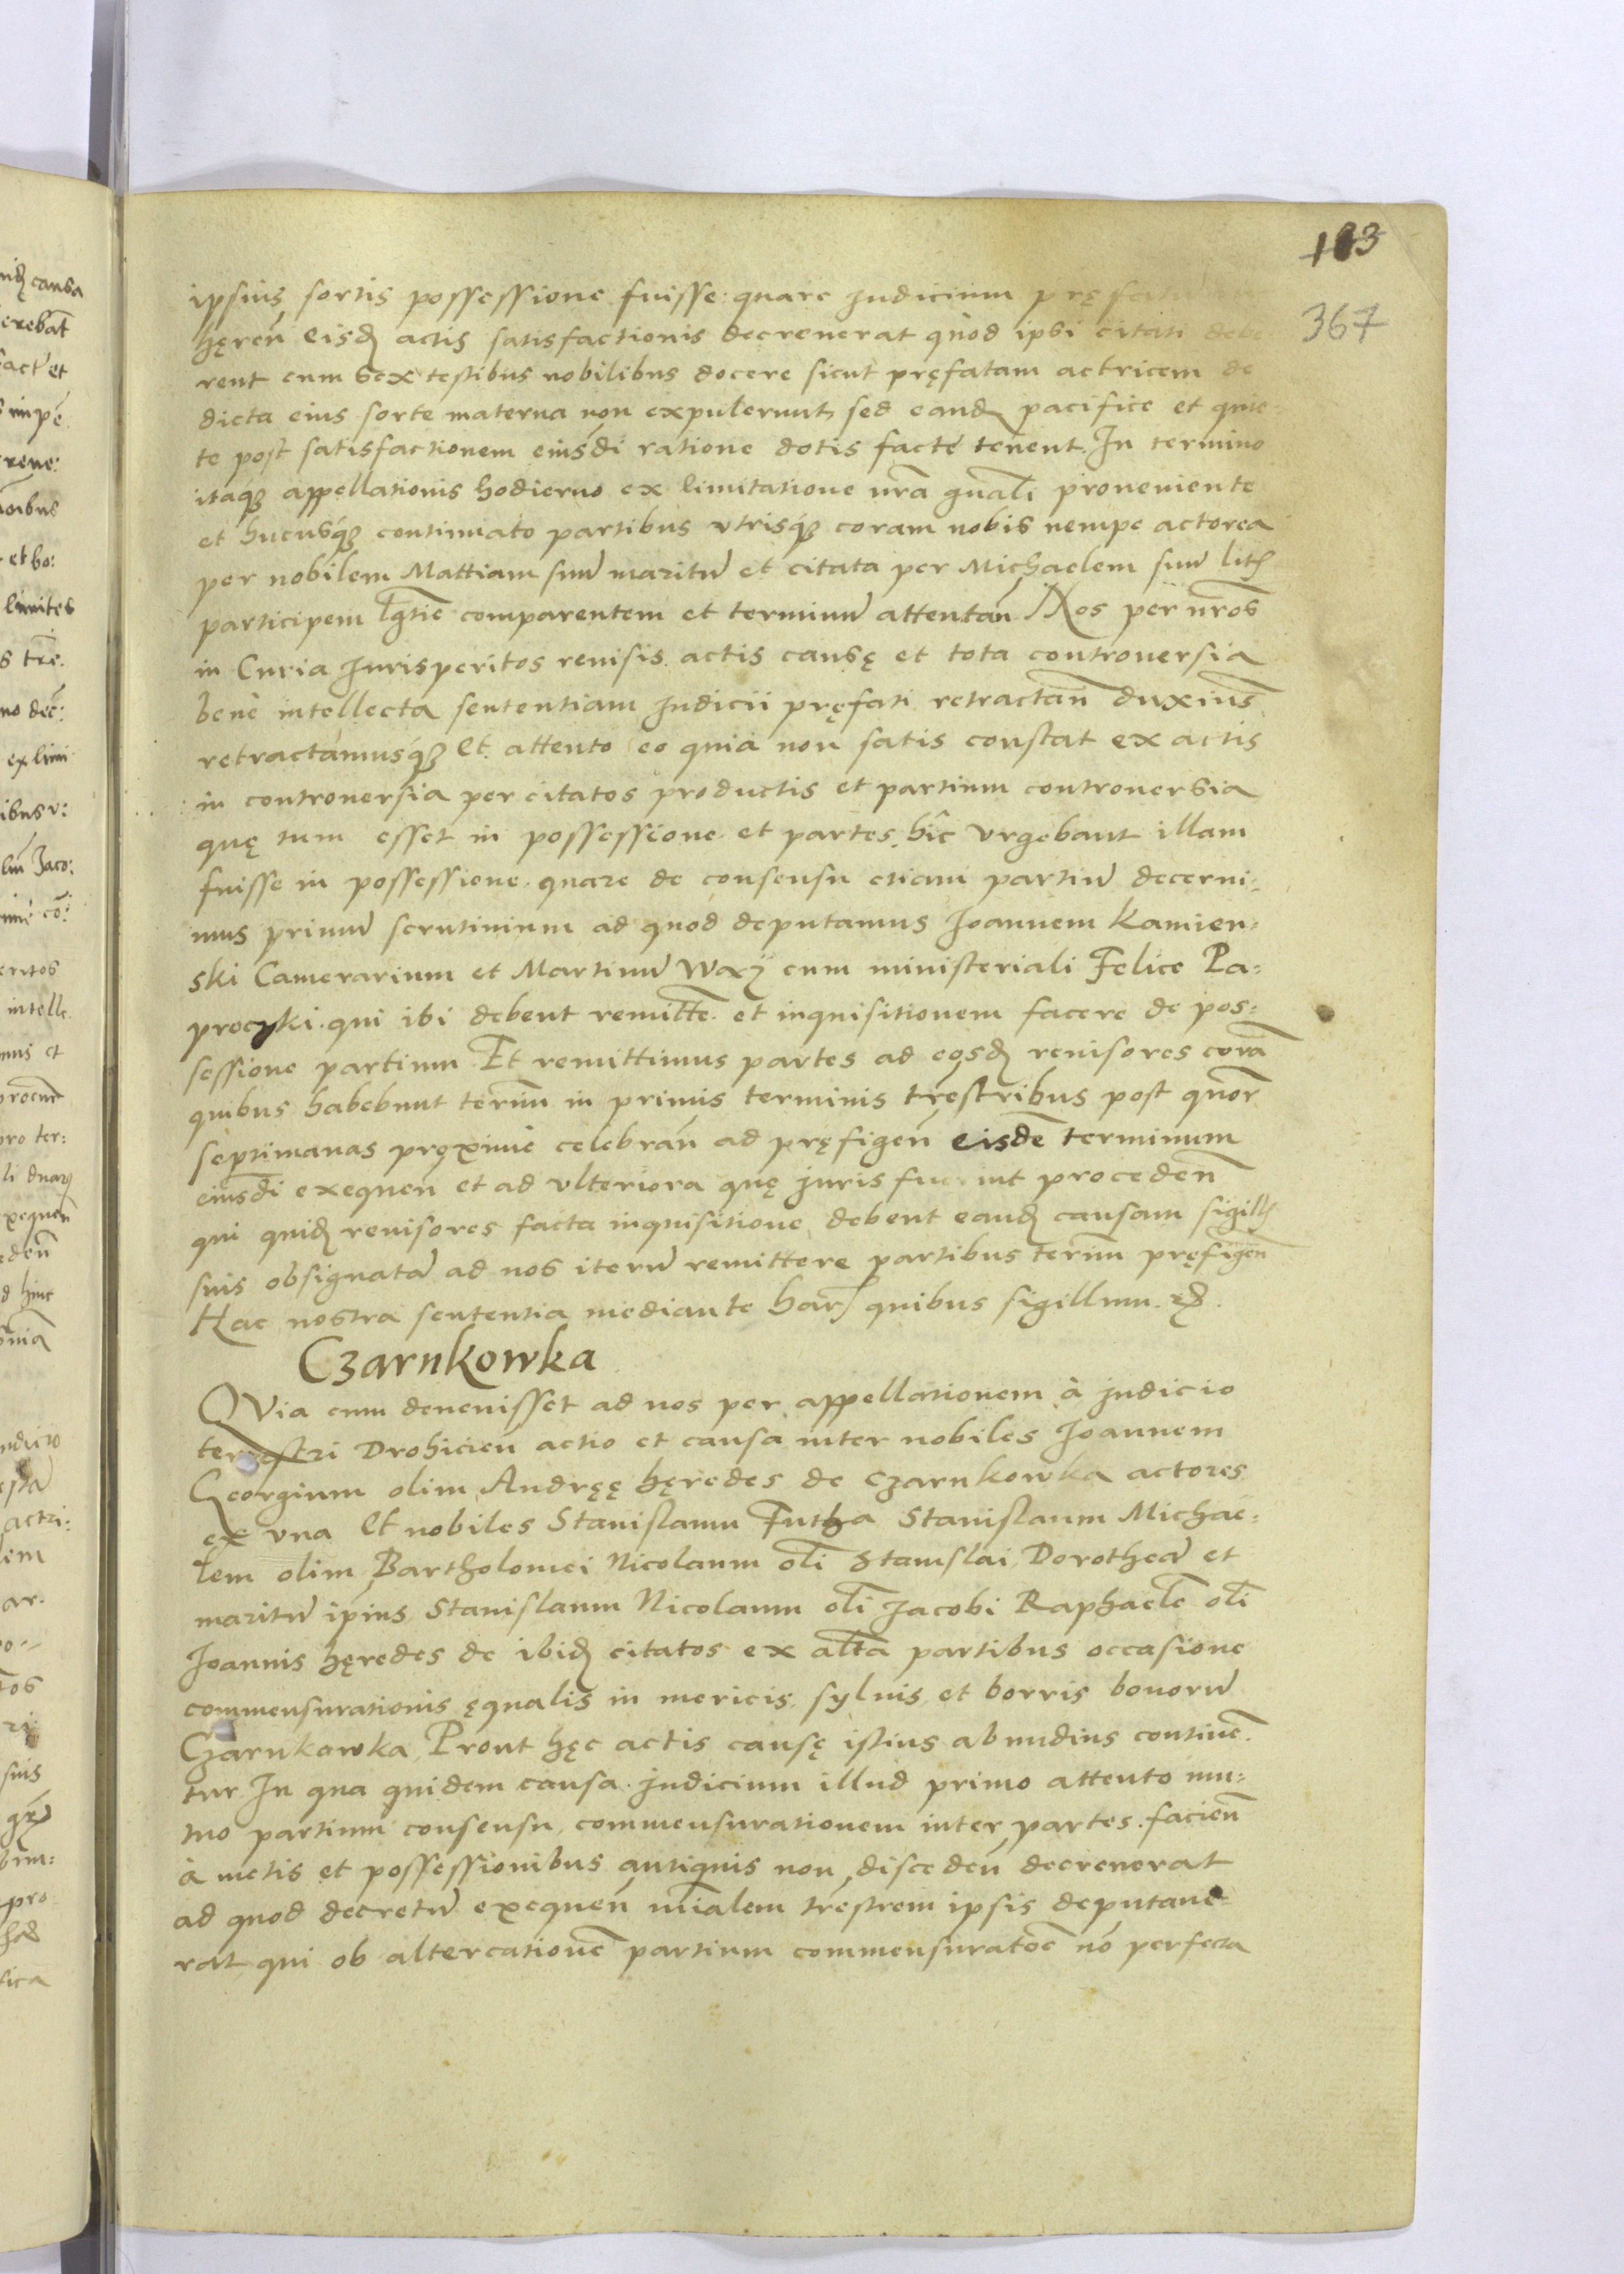 183
367
ipsius sortis possessione fuisse: quare Judicium pręfatu
hęren̄ eisdꝫ actis satisfactionis decreuerat quòd ipsi citati debe
rent cum sex testibus nobilibus docere sicut pręfatam actricem de
dicta eius sorte materna non expulerunt, sed eandꝫ pacifice et quie
te post satisfactionem eiusdi ratione dotis facte tenent. In termino
itaqꝫ appellationis hodierno ex limitatione nr̄a gn̄ali proueniente
et hucusqꝫ continuato partibus vtrisqꝫ coram nobis nempe actorea
per nobilem Mattiam suū maritū et citata per Michaelem suū litis
participem lgt̄ie comparentem et terminū attentan̄ Nos per nr̄os
in Curia Jurisperitos reuisis actis causę et tota controuersia
bene intellecta sententiam Judicii pręfati retractan̄ duxim̄s
retractamusqꝫ Et attento eo quia non satis constat ex actis
in controuersia per citatos productis et partium controuersia
quę tum esset in possessione et partes hīc vrgebant illam
fuisse in possessione. quare de consensu etiam partiū decerni:
mus primū scrutinium ad quod deputamus Joannem Kamien:
ski Camerarium et Martinū Waxÿ cum ministeriali Felice Pa:
procyki. qui ibi debent remitte. et inquisitionem facere de pos:
sessione partium Et remittimus partes ad eosdꝫ reuisores corā
quibus habebunt terīm in primis terminis trestribus post quōr
septimanas proxime celebran̄ ad pręfigen̄ eisdē terminum
eiusdi exequen̄ et ad vlteriora quę juris fuerint proceden̄
qui quidꝫ reuisores facta inquisitione debent eandꝫ causam sigill
suis obsignatā ad nos iterū remittere partibus terīm pręfigen̄
Hac nostra sententia mediante har quibus sigillum.
Czarnkowka
QVia cum deuenisset ad nos per appellationem à judicio
terrestri Drohicien̄ actio et causa inter nobiles Joannem
Georgium olim Andręę hęredes de Czarnkowka actores
ex vna Et nobiles Stanislaum Futha Stanislaum Michae:
lem olim Bartholomei Nicolaum olī Stanislai Dorotheā et
maritū ipīus Stanislaum Nicolaum olī Jacobi Raphaelē olī
Joannis hęredes de ibidꝫ citatos ex alt̄a partibus occasione
commensurationis ęqualis in mericis syluis et borris bonorū
Czarnkowka Prout hęc actis causę istius abundius contine
tur. In qua quidem causa judicium illud primo attento mu:
tuo partium consensu, commensurationem inter partes. facien̄
à metis et possessionibus antiquis non disceden̄ decreuerat
ad quod decretū exequen̄ mīalem trestrem ipsis deputaue
rat, qui ob altercationē partium commensuratōe nō perfecta